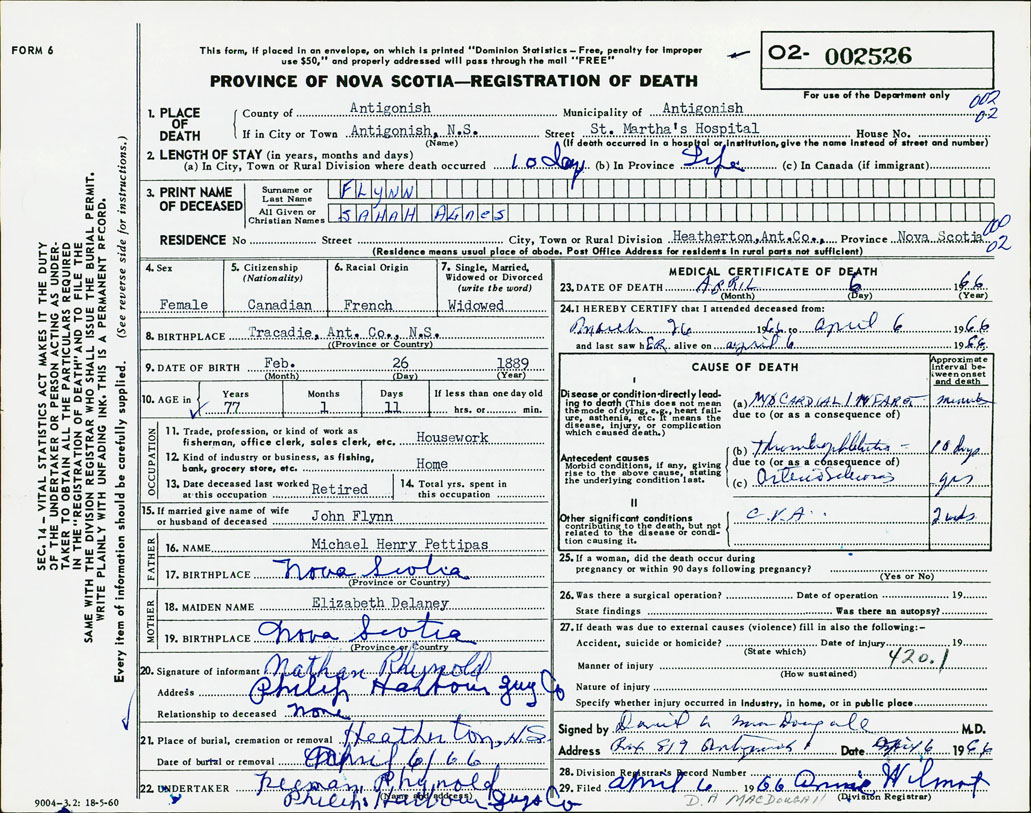 FORM 6
This form, if placed in an envelope, on which is printed "Dominion Statistics – Free, penalty for improper
use $50," and properly addressed will pass through the mail "FREE"
PROVINCE OF NOVA SCOTIA—REGISTRATION OF DEATH
02- 002526
For use of the Department only
002
02
1. PLACE OF DEATH
County of Antigonish Municipality of Antigonish
If in City or Town Antigonish, N.S. Street St. Martha's Hospital House No.
(Name) (If death occurred in a hospital or institution, give the name instead of street and number)
2. LENGTH OF STAY (in years, months and days)
(a) In City, Town or Rural Division where death occurred 10 day (b) In Province Life (c) In Canada (if immigrant)
3. PRINT NAME OF DECEASED
Surname or Last Name FLYNN
All Given or Christian Names SARAH AGNES
000
02
RESIDENCE No Street City, Town or Rural Division Heatherton, Ant. Co., Province Nova Scotia
(Residence means usual place of abode. Post Office Address for residents in rural parts not sufficient)
4. Sex
Female
5. Citizenship (Nationality)
Canadian
6. Racial Origin
French
7. Single, Married, Widowed or Divorced (write the word)
Widowed
8. BIRTHPLACE Tracadie, Ant. Co., N.S.
(Province or Country)
9. DATE OF BIRTH Feb. 26 1889
(Month) (Day) (Year)
10. AGE in Years 77 Months 1 Days 11 If less than one day old hrs. or min.
OCCUPATION
11. Trade, profession, or kind of work as
fisherman, office clerk, sales clerk, etc. Housework
12. Kind of industry or business, as fishing,
bank, grocery store, etc. Home
13. Date deceased last worked
at this occupation Retired
14. Total yrs. spent in
this occupation
15. If married give name of wife
or husband of deceased John Flynn
FATHER
16. NAME Michael Henry Pettipas
17. BIRTHPLACE Nova Scotia
(Province or Country)
MOTHER
18. MAIDEN NAME Elizabeth Delaney
19. BIRTHPLACE Nova Scotia
(Province or Country)
20. Signature of informant Nathan Rhynold
Address Philip Harbour Guy Co
Relationship to deceased none
21. Place of burial, cremation or removal Heatherton, N.S.
Date of burial or removal April 6/66
22. UNDERTAKER Freeman Rhynold
Philips Harbour Guys Co
(Name and address)
MEDICAL CERTIFICATE OF DEATH
23. DATE OF DEATH APRIL 6 1966
(Month) (Day) (Year)
24. I HEREBY CERTIFY that I attended deceased from:
March 26 1966 to April 6 1966
and last saw hER alive on April 6 1966
CAUSE OF DEATH
Approximate interval between onset and death
I
Disease or condition directly leading to death (This does not mean the mode of dying, e.g., heart failure, asthenia, etc. It means the disease, injury, or complication which caused death.)
(a) MYOCARDIAL INFARCT minutes
due to (or as a consequence of)
Antecedent causes
Morbid conditions, if any, giving rise to the above cause, stating the underlying condition last.
(b) Thrombophlebitis - 10 days
due to (or as a consequence of)
(c) Arteriosclerosis yrs
II
Other significant conditions
contributing to the death, but not related to the disease or condition causing it.
C.V.A. 2 wks
25. If a woman, did the death occur during
pregnancy or within 90 days following pregnancy?
(Yes or No)
26. Was there a surgical operation? Date of operation 19
State findings Was there an autopsy?
27. If death was due to external causes (violence) fill in also the following:–
Accident, suicide or homicide? Date of injury 19
(State which)
420.1
Manner of injury
(How sustained)
Nature of injury
Specify whether injury occurred in industry, in home, or in public place
Signed by David A MacDougall M.D.
Address Box 819 Antigonish Date April 6 1966
28. Division Registrar's Record Number
29. Filed April 6 1966 Annie Wilmot
(Division Registrar)
D. A MACDOUGALL
9004–3.2: 18-5-60
SEC. 14 – VITAL STATISTICS ACT MAKES IT THE DUTY
OF THE UNDERTAKER OR PERSON ACTING AS UNDER-
TAKER TO OBTAIN ALL THE PARTICULARS REQUIRED
IN THE "REGISTRATION OF DEATH" AND TO FILE THE
SAME WITH THE DIVISION REGISTRAR WHO SHALL ISSUE THE BURIAL PERMIT.
WRITE PLAINLY WITH UNFADING INK. THIS IS A PERMANENT RECORD.
Every item of information should be carefully supplied. (See reverse side for instructions.)